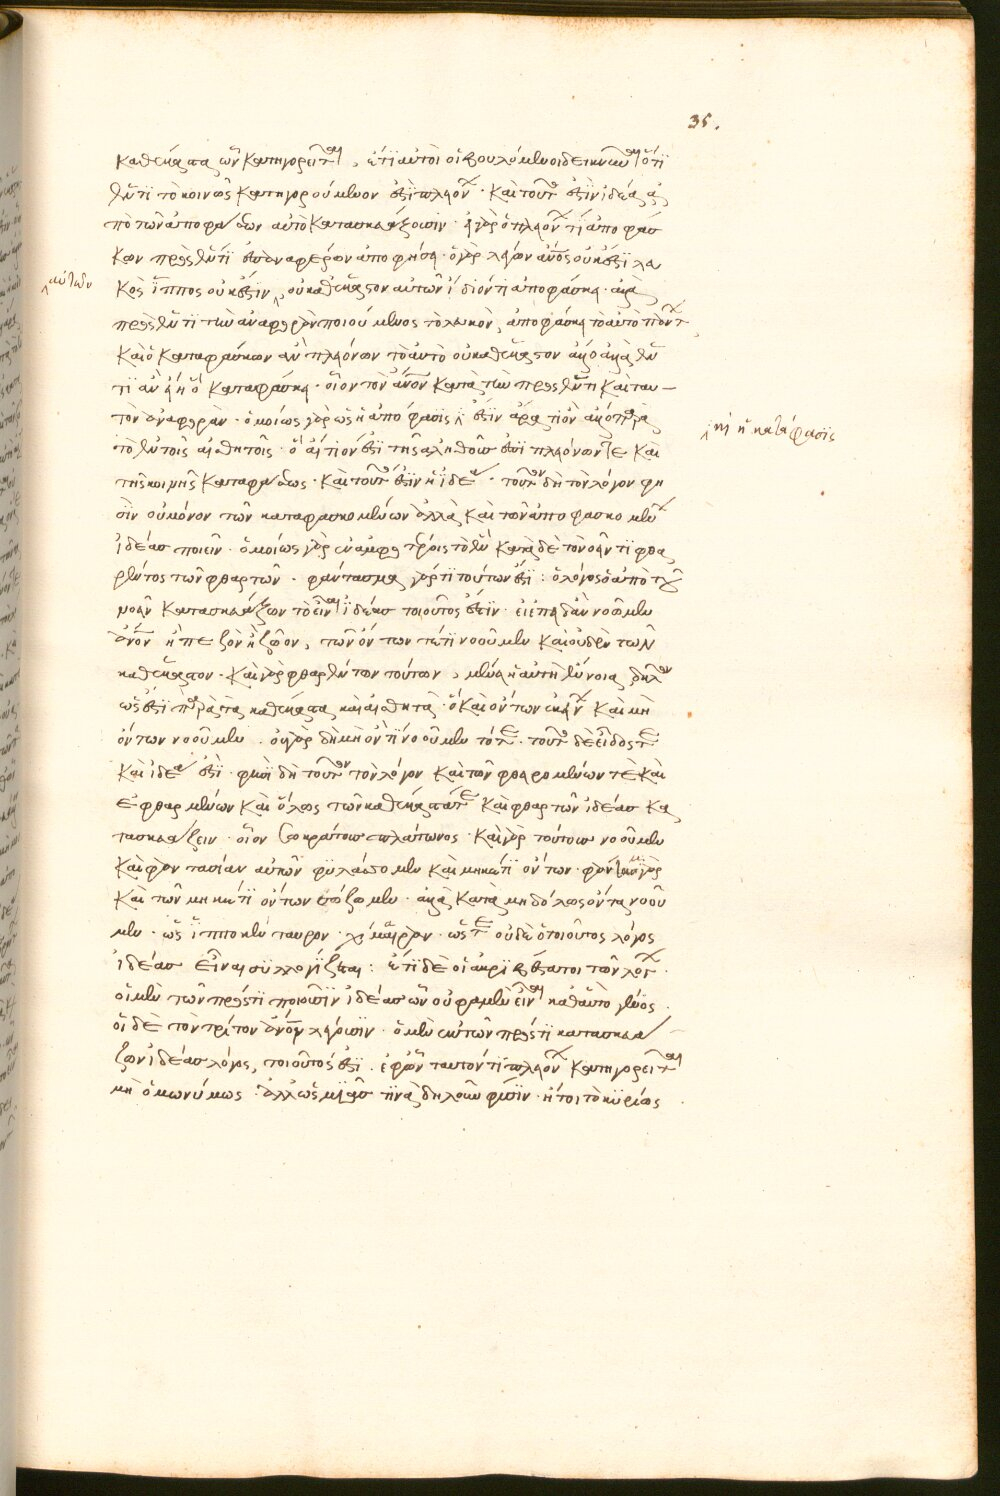 35.
καθέκαστα ὧν κατηγορεῖται, ἔτι αὐτοὶ οἱ βουλόμενοι δεικνύναι ὅτι
ἕν τι τὸ κοινῶς κατηγορούμενον ἐπὶ πλειόνων· καὶ τοῦτό ἐστιν ἰδέα, ἀ
πὸ τῶν ἀποφάσεων αὐτὸ κατασκευάζουσιν· εἰ γὰρ ὁ πλειόνων τι ἀποφάσ
κων πρὸς ἕν τι ἐπαναφέρων ἀποφήσει· ὁ γὰρ λέγων ἄνθρωπος οὐκ ἔστι λευ
κὸς ἵππος οὐκ ἔστιν, οὐ καθέκαστον αὐτῶν ἴδιόν τι ἀποφάσκει· ἀλλὰ
αὐτῶν
πρὸς ἕν τι τὴν ἀναφορὰν ποιούμενος τὸ λευκὸν, ἀποφάσκει τὸ αὐτὸ πάντων
καὶ ὁ καταφάσκων ἂν πλειόνων τὸ αὐτὸ οὐ καθέκαστον ἄλλο ἀλλὰ ἕν
τι ἂν εἴη ὃ καταφάσκει· οἷον τὸν ἄνθρωπον κατὰ τὴν πρὸς ἕν τι καὶ ταυ
τὸν ἀναφοράν· ὁμοίως γὰρ ὡς ἡ ἀπόφασις ἔστιν ἄρα τι ὂν ἄλλο παρὰ
ει ἡ κατάφασις
τὸ ἐν τοῖς αἰσθητοῖς· ὃ αἴτιόν ἐστι τῆς ἀληθοῦς ἐπὶ πλειόνων τε καὶ
τῆς κοινῆς καταφάσεως· καὶ τοῦτό ἐστιν ἡ ἰδέα· τοῦτον δὴ τὸν λόγον φη
σὶν οὐ μόνον τῶν καταφασκομένων ἀλλὰ καὶ τῶν ἀποφασκομένων
ἰδέας ποιεῖν· ὁμοίως γὰρ ἐν ἀμφοτέροις τὸ ἕν κατὰ δὲ τὸ νοεῖν τι φθα
ρέντος τῶν φθαρτῶν· φάντασμα γάρ τι τούτων ἐστί: ὁ λόγος ὁ ἀπὸ τοῦ
νοεῖν κατασκευάζων τὸ εἶναι ἰδέας τοιοῦτός ἐστιν· εἰ ἐπειδὰν νοῶμεν
ἄνθρωπον ἢ πεζὸν ἢ ζῷον, τῶν ὄντων τέ τι νοοῦμεν καὶ οὐδὲν τῶν
καθέκαστον· καὶ γὰρ φθαρέντων τούτων, μένει ἡ αὐτὴ ἔννοια, δῆλον
ὡς ἔστι παρὰ τὰ καθέκαστα καὶ αἰσθητὰ· ὃ καὶ ὄντων ἐκείνων καὶ μὴ
ὄντων νοοῦμεν· οὐ γὰρ δὴ μὴ ὄν τι νοοῦμεν τότε· τοῦτο δὲ εἶδός τε
καὶ ἰδέα ἐστί· φησὶ δὴ τοῦτον τὸν λόγον καὶ τῶν φθειρομένων τε καὶ
ἐφθαρμένων καὶ ὅλως τῶν καθέκαστά τε καὶ φθαρτῶν ἰδέας κα
τασκευάζειν· οἷον Σωκράτους Πλάτωνος· καὶ γὰρ τούτους νοοῦμεν
καὶ φαντασίαν αὐτῶν φυλάσσομεν καὶ μηκέτι ὄντων· φάντασμα γὰρ
καὶ τῶν μηκέτι ὄντων σώζομεν· ἀλλὰ κατὰ μηδόλως ὄντα νοοῦ
μεν· ὡς ἱπποκένταυρον· χίμαιραν· ὥστε οὐδὲ ὁ τοιοῦτος λόγος
ἰδέας εἶναι συλλογίζεται: ἔτι δὲ οἱ ἀκριβέστατοι τῶν λόγων
οἱ μὲν τῶν πρός τι ποιοῦσιν ἰδέας ὧν οὔ φαμεν εἶναι καθ' αὑτὸ γένος
οἱ δὲ τὸν τρίτον ἄνθρωπον λέγουσιν· ὁ μὲν ἐκ τῶν πρός τι κατασκευά
ζων ἰδέας λόγος, τοιοῦτός ἐστι· ἐφ' ὧν ταυτόν τι πλειόνων κατηγορεῖται
μὴ ὁμωνύμως· ἀλλ' ὡς μίαν τινὰ δηλοῦν φύσιν· ἤτοι τὸ κυρίως